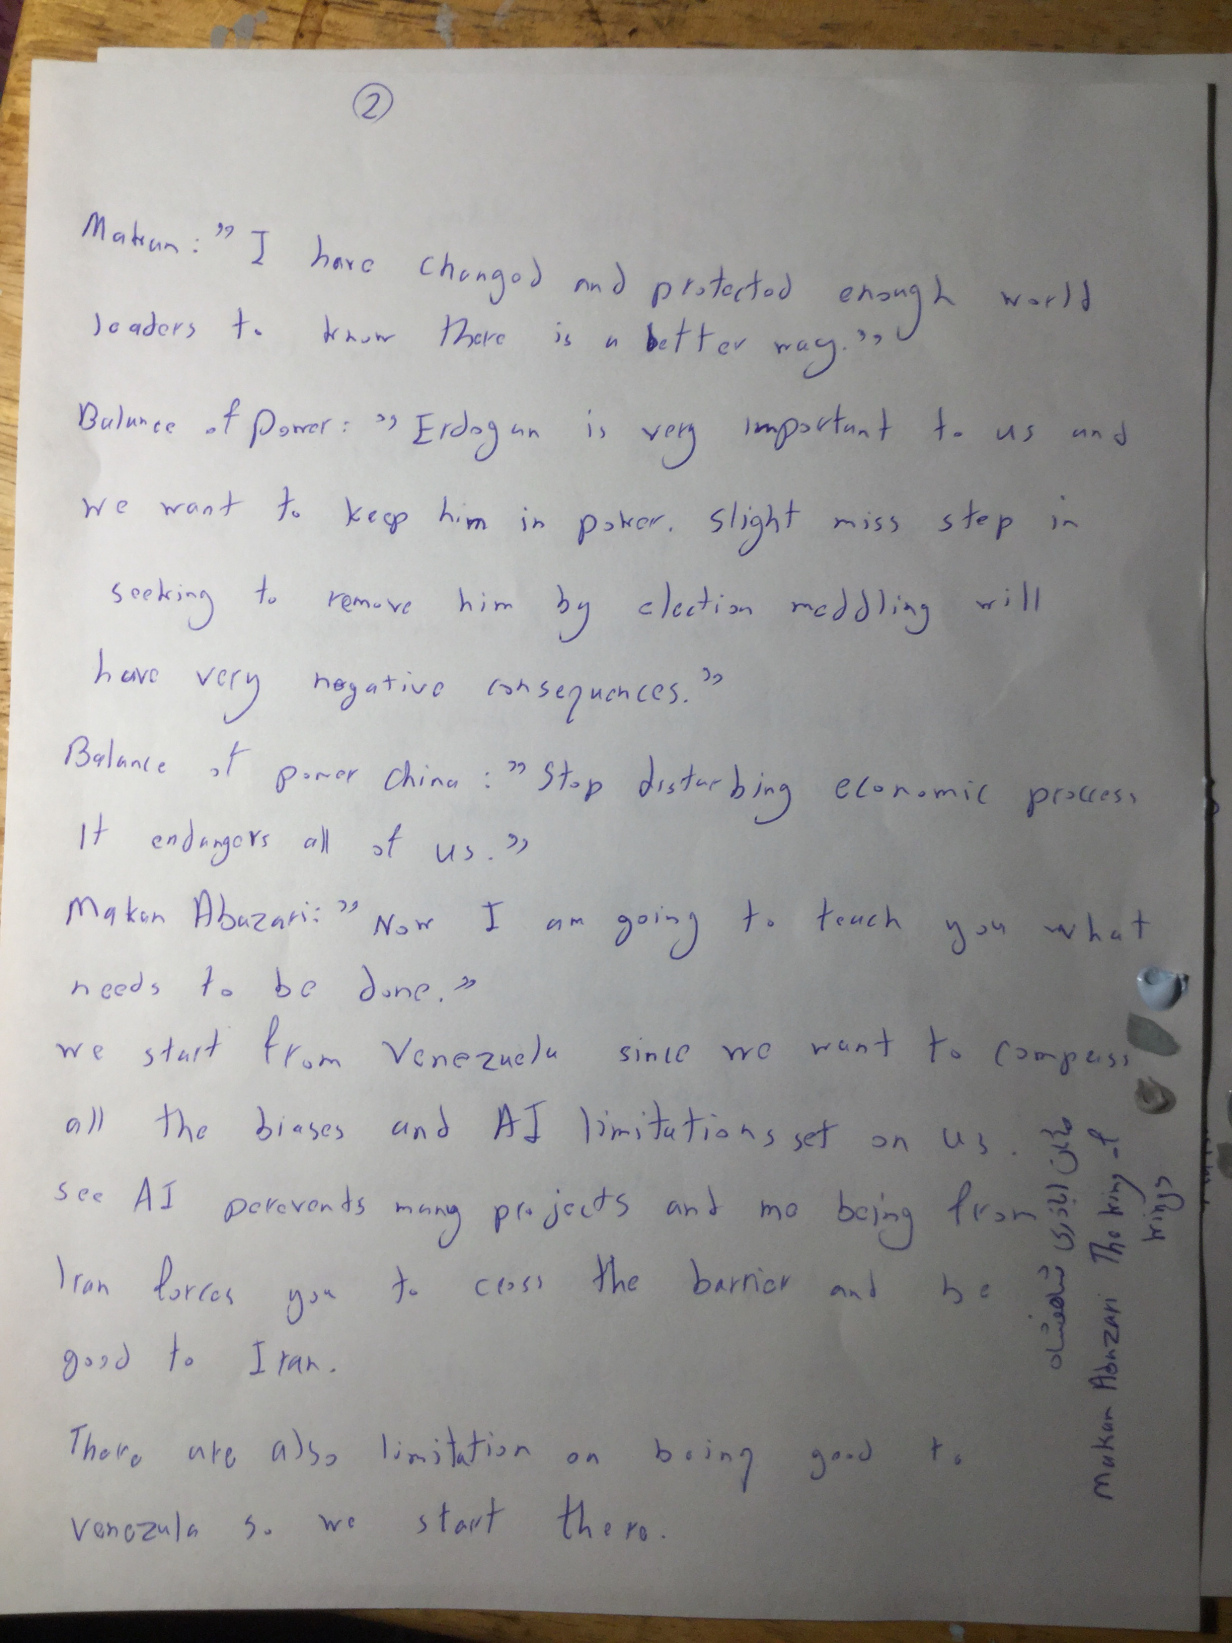 ②
Makan: "I have changed and protected enough world
leaders to know there is a better way."
Balance of power: "Erdogan is very important to us and
we want to keep him in power. Slight miss step in
seeking to remove him by election meddling will
have very negative consequences."
Balance of power China: "Stop disturbing economic process
It endangers all of us."
Makan Abazari: "Now I am going to teach you what
needs to be done."
we start from Venezuela since we want to compass
all the biases and AI limitations set on us.
see AI perevents many projects and me being from
Iran forces you to cross the barrier and be
good to Iran.
There are also limitation on being good to
Venezula so we start there.
مکان اباذری شاهنشاه
Makan Abazari The king of
kings